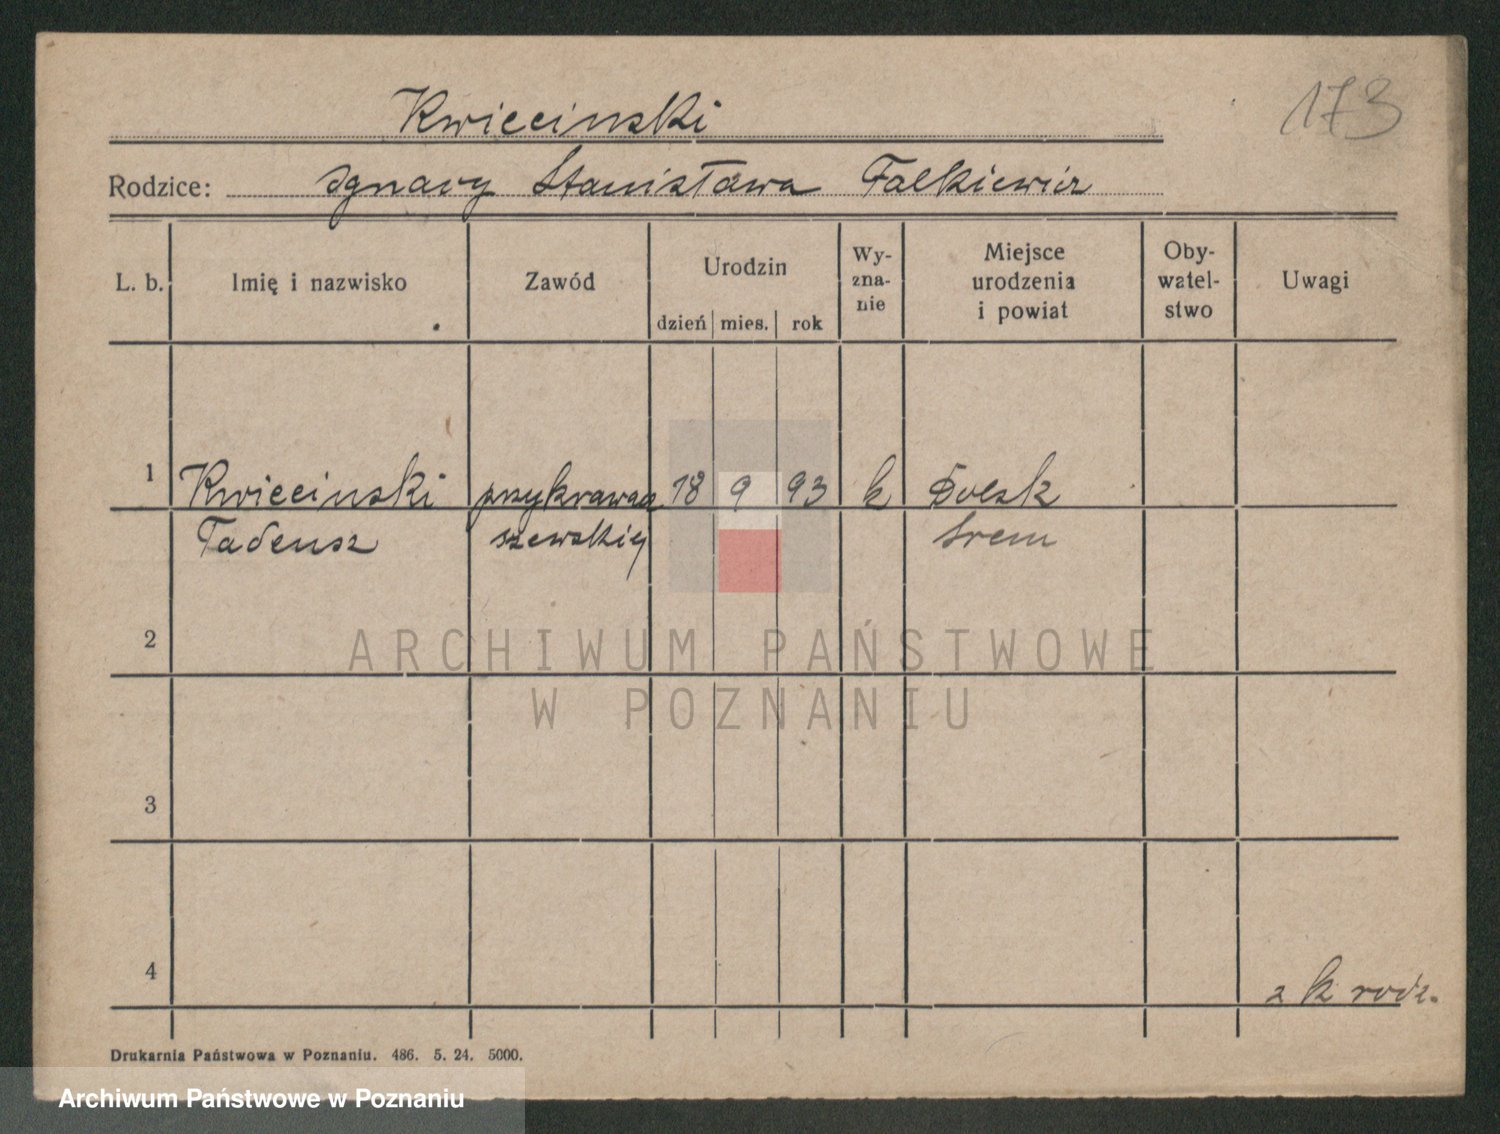 173
Kwiecinski
Rodzice: Ignacy Stanisława Falkiewicz
L. b. Imię i nazwisko Zawód Urodzin dzień mies. rok Wy-zna-nie Miejsce urodzenia i powiat Oby-watel-stwo Uwagi
1 Kwiecinski przykrawacz 18 9 93 k Dolsk
Tadeusz szewskiej Srem
2
ARCHIWUM PAŃSTWOWE
W POZNANIU
3
4
z k rodz.
Drukarnia Państwowa w Poznaniu. 486. 5. 24. 5000.
Archiwum Państwowe w Poznaniu